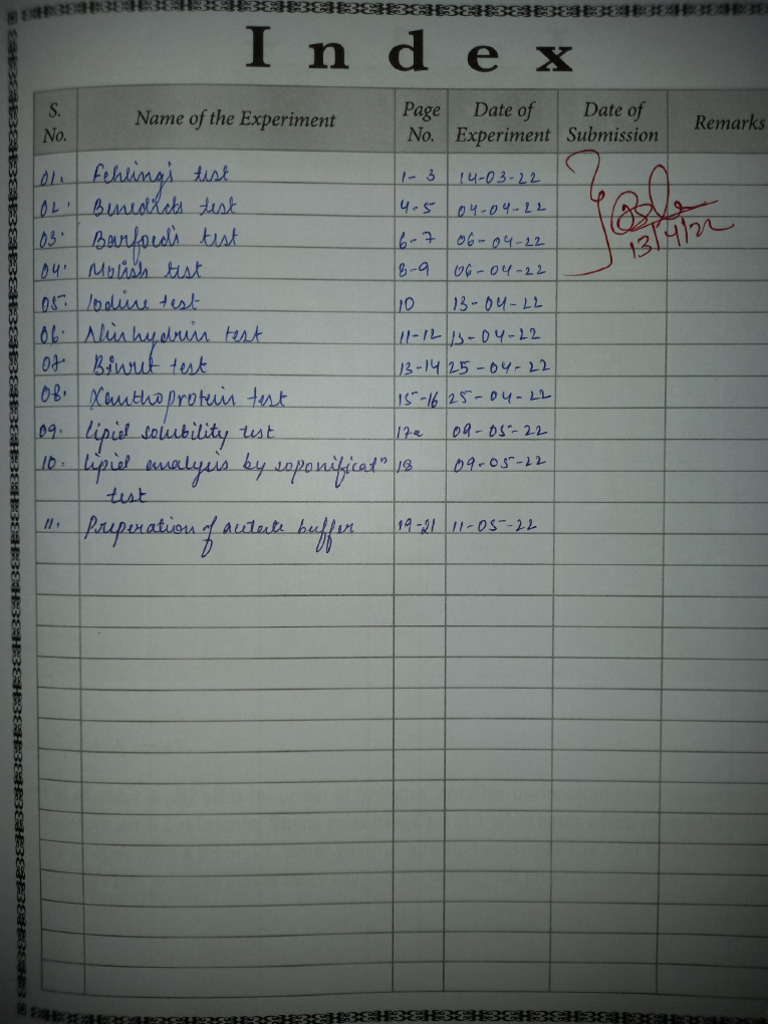 Index
S. No. Name of the Experiment Page No. Date of Experiment Date of Submission Remarks
01. Fehling's test 1-3 14-03-22
02. Benedicts test 4-5 04-04-22
03. Barfoed's test 6-7 06-04-22
04. Molish test 8-9 06-04-22
13/4/22
05. Iodine test 10 13-04-22
06. Ninhydrin test 11-12 13-04-22
07. Biuret test 13-14 25-04-22
08. Xanthoprotein test 15-16 25-04-22
09. Lipid solubility test 17a 09-05-22
10. Lipid analysis by soponificatⁿ 18 09-05-22
test
11. Preperation of acetate buffer 19-21 11-05-22